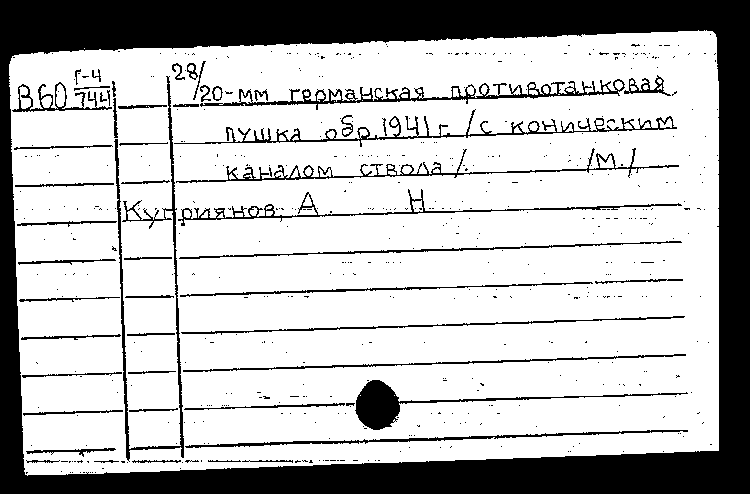 В60 Г-4/744
28/20-мм германская противотанковая
пушка обр. 1941 г. /с коническим
каналом ствола/. /М./.
Куприянов, А. Н.